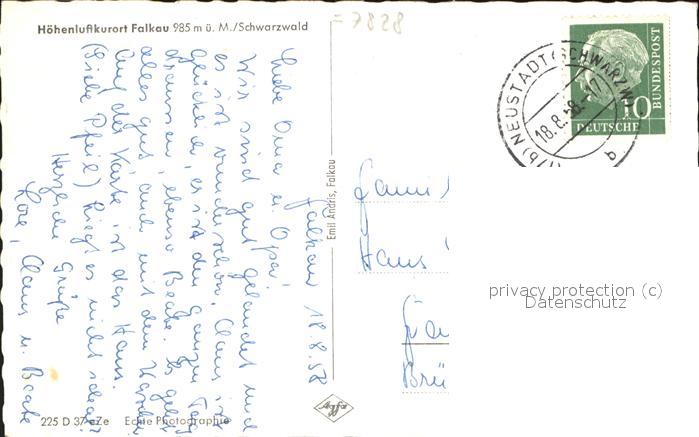 Höhenluftkurort Falkau 985 m ü. M./Schwarzwald
= 7828
NEUSTADT (SCHWARZW
18.8.58
(17b)
b
10
DEUTSCHE
BUNDESPOST
Falkau 18.8.58
Liebe Oma u. Opa!
Wir sind gut gelandet und
es ist wunderschön. Claus ist
glücklich, er ist den ganzen Tag
draussen, ebenso Beate. Es geht
alles gut, auch mit dem
Auf der Karte ist das Haus.
(Siehe Pfeil) liegt es nicht schön?
Herzliche Grüße
Claus u. Beate
Emil Andris, Falkau
Fami
Hans
Brü
privacy protection (c)
Datenschutz
Agfa
225 D 37 eZe Echte Photographie